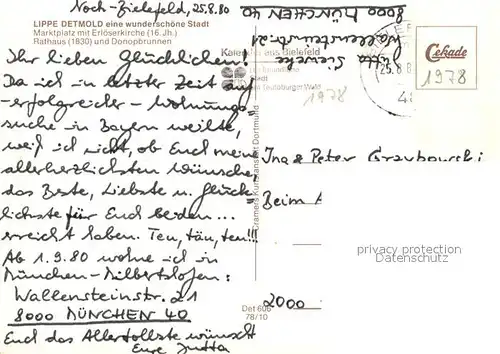 Noch-Bielefeld, 25.8.80
LIPPE DETMOLD eine wunderschöne Stadt
Marktplatz mit Erlöserkirche (16. Jh.)
Rathaus (1830) und Donopbrunnen
Ihr lieben Glücklichen!
Da ich in letzter Zeit auf
-erfolgreicher-Wohnungs-
suche in Bayern weilte,
weiß ich nicht, ob Euch meine
allerherzlichsten Wünsche
"das Beste, Liebste u. Glück-
lichste für Euch beiden..."
erreicht haben. Teu, täu, teu!!!
Ab 1.9.80 wohne ich in
München-Milbertshofen:
Wallensteinstr. 21
8000 MÜNCHEN 40
Euch das Allertollste wünscht
Eure Jutta
aus Bielefeld
Stadt
am Teutoburger Wald
Cramers Kunstanstalt Dortmund
Det 606
78/10
Jutta
Wallensteinstr. 21
8000 MÜNCHEN 40
25.8.8
1978
Cekade
1978
Ina & Peter Grabowski
Beim
2000
privacy protection
Watermark